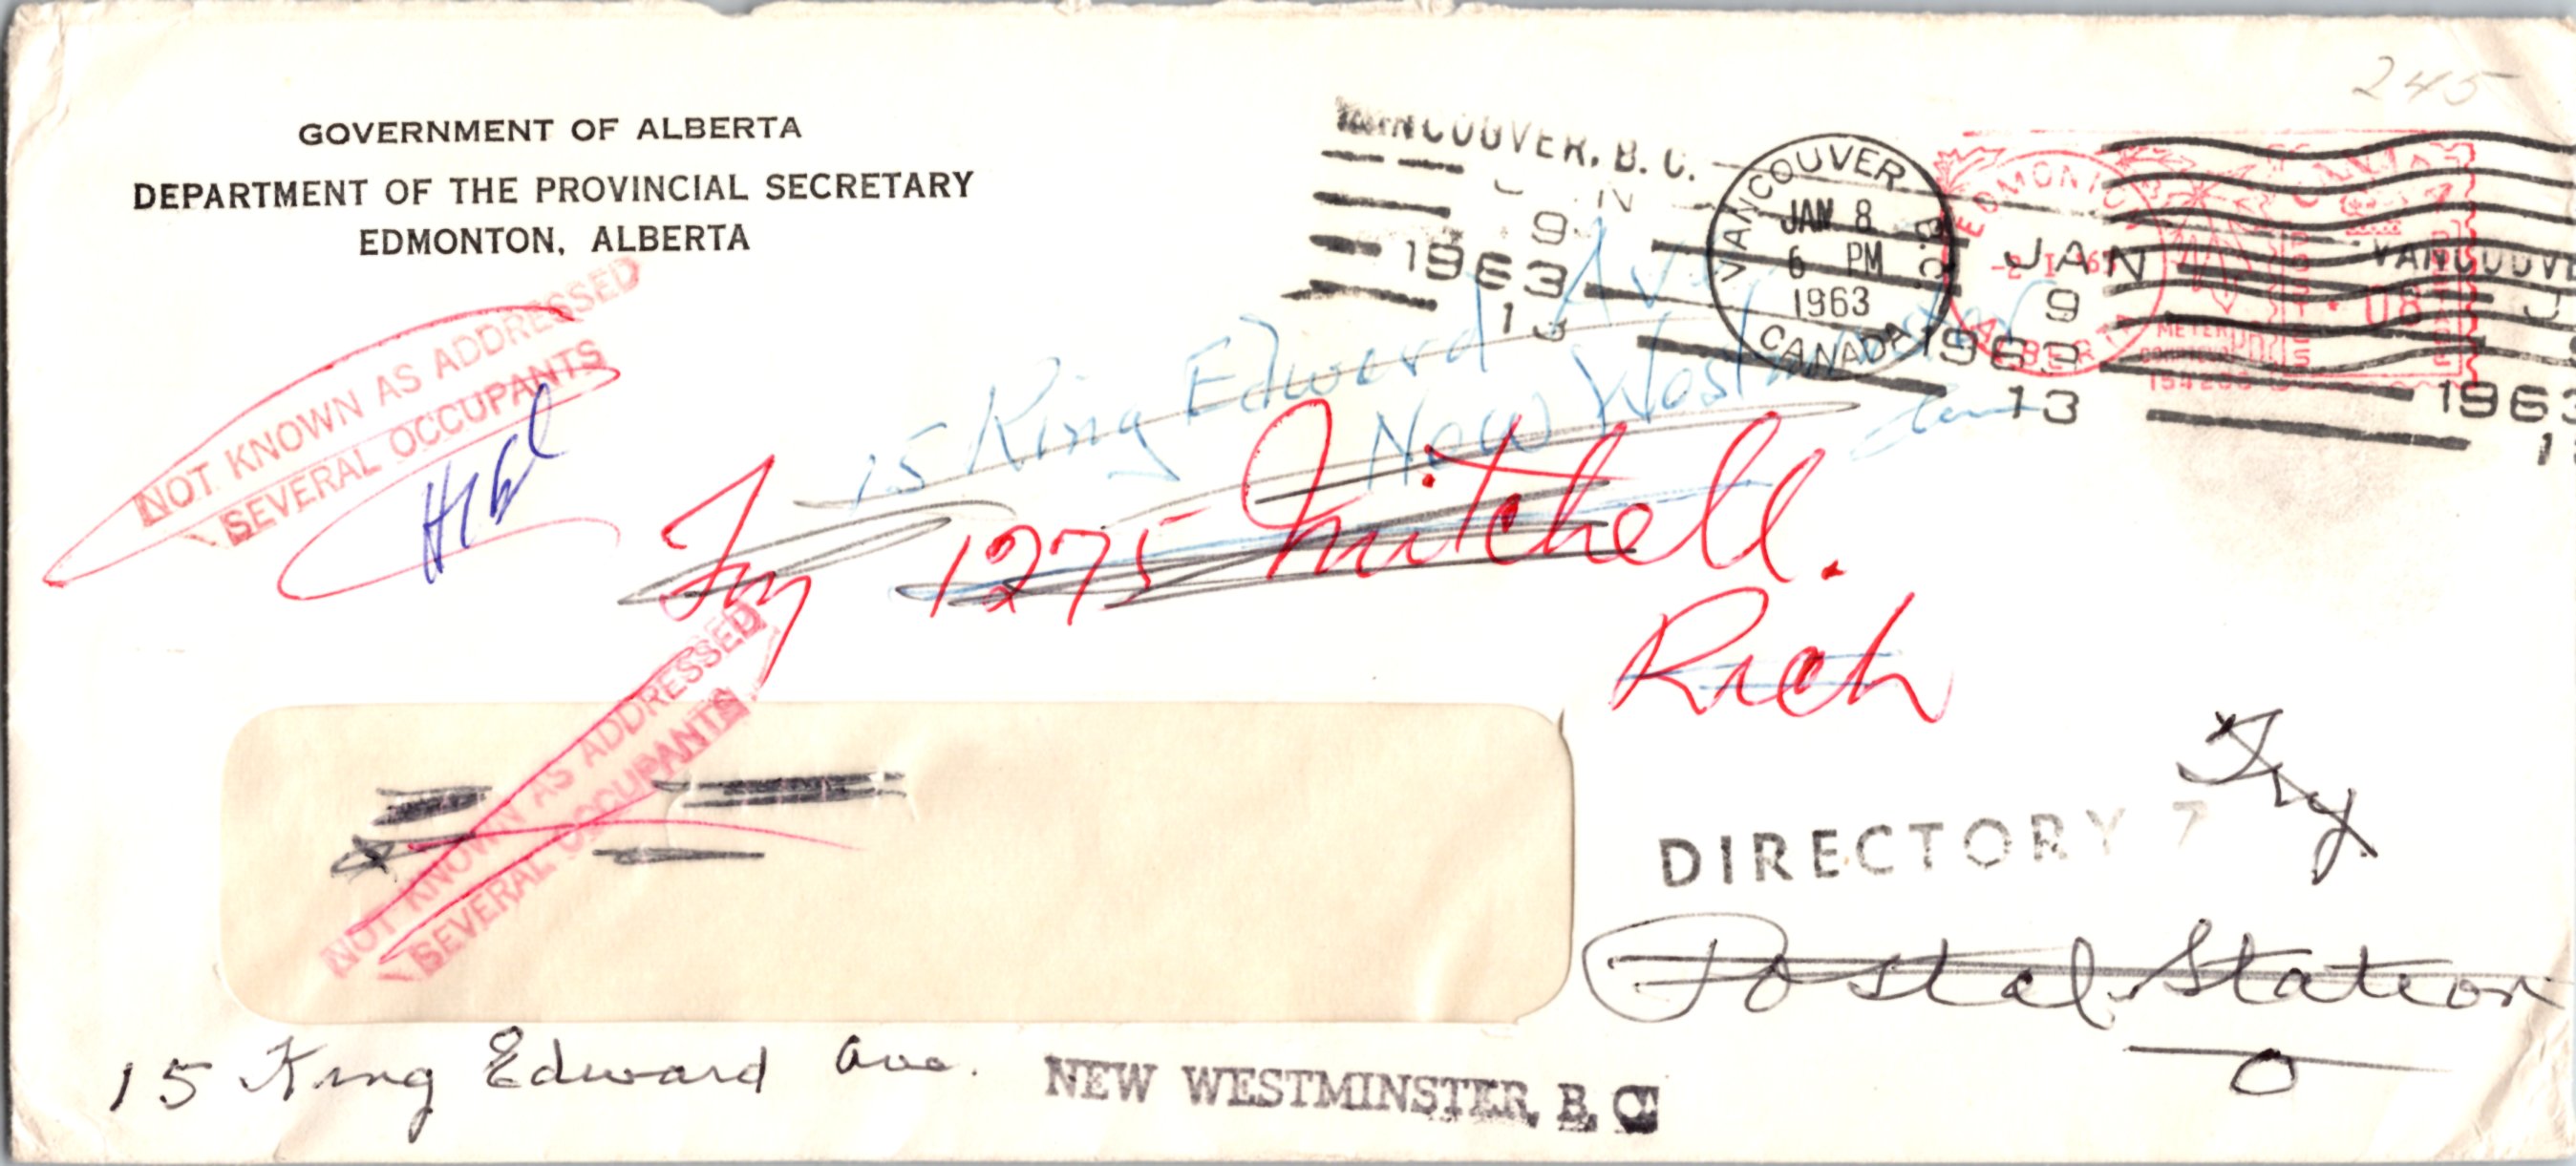 245
GOVERNMENT OF ALBERTA
DEPARTMENT OF THE PROVINCIAL SECRETARY
EDMONTON, ALBERTA
VANCOUVER, B. C.
9
1963
13
VANCOUVER B.C.
JAN 8
6 PM
1963
CANADA
JAN
9
1963
13
EDMONTON
ALBERTA
CANADA
POSTES
POSTAGE
08
METER
VANCOUVE
J
1963
NOT KNOWN AS ADDRESSED
SEVERAL OCCUPANTS
15 King Edward Av
New Westminster
Try 1275 Mitchell.
Rich
NOT KNOWN AS ADDRESSED
SEVERAL OCCUPANTS
Try
DIRECTORY 7
Postal Station
O
15 King Edward Ave. NEW WESTMINSTER, B. C.